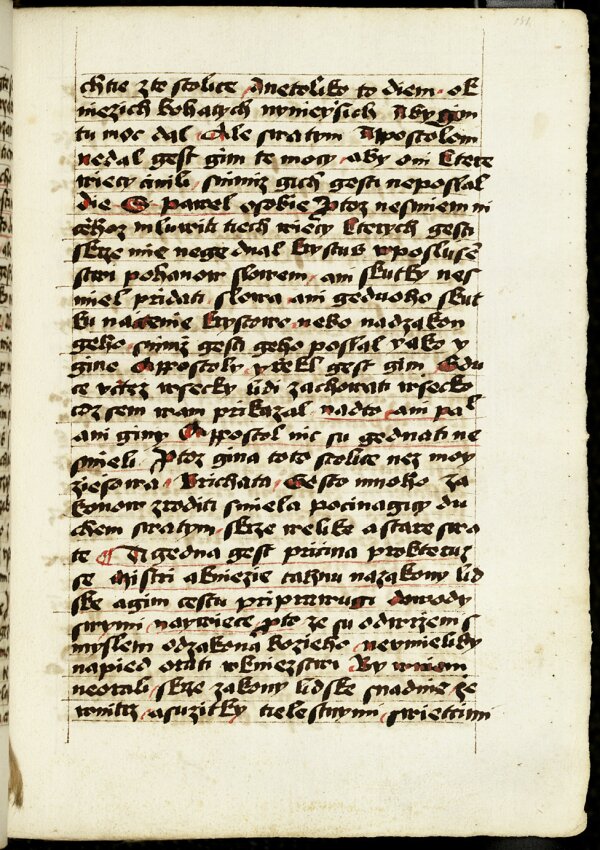 chtie zte stolice Anetoliko to diem ok
niezich bohatych nymiersich Aby gim
tu moc dal Ale swatym Apostolem
nedal gest gim te mocy aby oni ktere
wiecy cinili snimiz gich gesti neposlal
die S pawel osobie Ptoz nesmiem ni
czehoz mluwiti tiech wiecy kterych gesti
skrze mie negednal krystus wposlusen
stwi pohanow slowem ani skutky nes
miel pridati slowa ani gednoho skut
ku nad cenie krystowo neko nadzakon
geho snimz gesti geho poslal yako y
gine Appostoly yrekl gest gim Gdu
ce vctez wsecky lidi zachowati wsecko
coz sem wam prikazal nadto ani pal
ani giny Appostol nic su gednati ne
smieli Ptoz gina toto stolice nez moy
ziesowa Brichata Gesto mnoho za
konow zroditi smiela pocinagicy du
chem swatym skrze welike a stare swa
te Ti gedna gest pricina prokteruz
se Mistri akniezie tahnu nazakony lid
ske agim cestu priprawugi dowody
swymi naywiece pto ze su odwrzem s
myslem odzakona bozieho neumieliby
napied otati wkniezstwi By wnem
neorali skrze zakony lidske snadnie ze
wnitrz asuzitky tielestnymi swietskimi